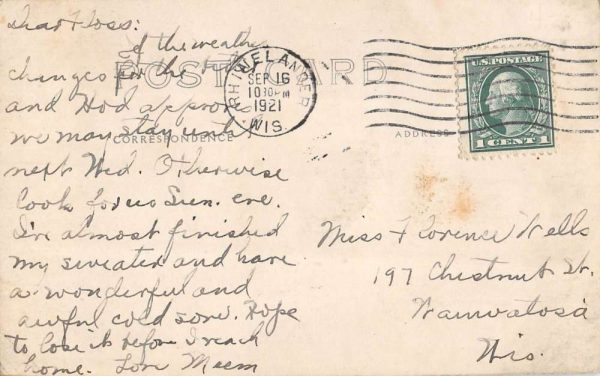 Dear Floss:
If the weather
changes for the
and Hod approves
we may stay until
next Wed. Otherwise
look for us Sun. eve.
I've almost finished
my sweater and have
a wonderful and
awful cold sore. Hope
to lose it before I reach
home. Love Meem
POST CARD
CORRESPONDENCE
ADDRESS
RHINELANDER
SEP 16
10 30 PM
1921
WIS.
U.S. POSTAGE
1 CENT 1
Miss Florence Wells
197 Chestnut St.
Wauwatosa
Wis.